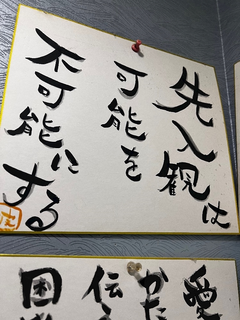 先入観は
可能を
不可能にする
愛
かた
伝
困